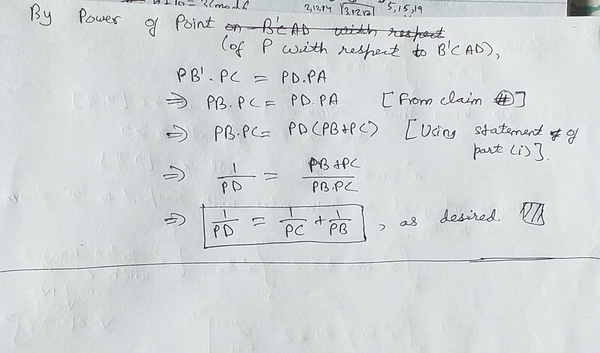 ≡ 2(mod
2,12,14 3,12,12 5,15,19
By Power of Point on B'CAD with respect
(of P with respect to B'CAD),
PB'. PC = PD.PA
⇒ PB.PC = PD.PA [From claim #]
⇒ PB.PC = PD(PB+PC) [Using statement of part (i)].
⇒ 1/PD = PB+PC/PB.PC
⇒ 1/PD = 1/PC + 1/PB, as desired